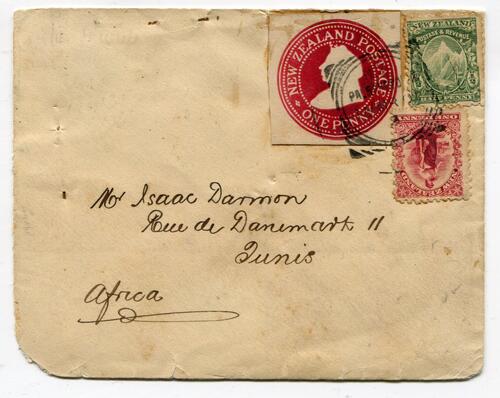 NEW ZEALAND POSTAGE
ONE PENNY
NEW ZEALAND
POSTAGE & REVENUE
Mr Isaac Darmon
Rue de Danemark 11
Tunis
Africa